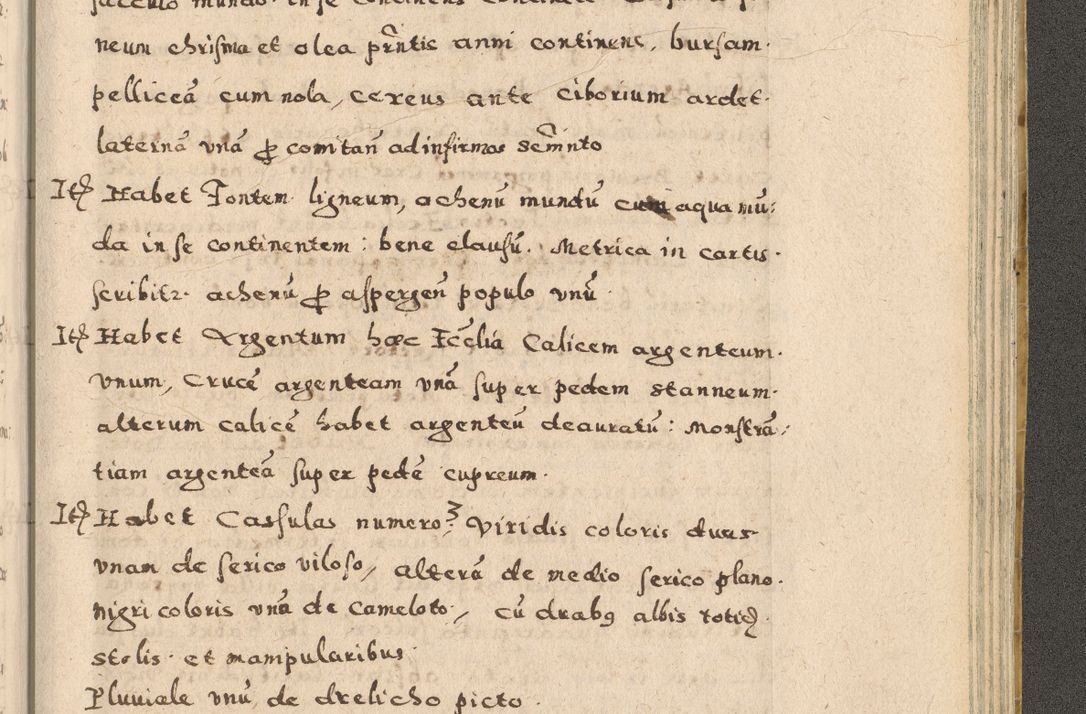 neum chrisma et olea pr̃ntis anni continens, bursam
pelliceã cum nola, cereus ante ciborium ardet.
laternã vnã ꝓ comitañ ad infirmos Sẽmnto
Itẽ Habet Fontem ligneum, achenũ mundũ cum aqua mũ:
da in se continentem: bene clausũ. Metrica in cartis.
scribitr. achenũ ꝓ aspergeñ populo vnũ.
Itẽ Habet Argentum hæc Ecc̃lia Calicem argenteum.
vnum, Crucẽ argenteam vnã super pedem stanneum.
alterum calicẽ habet argenteũ deauratũ: Monstrã:
tiam argenteã super pedẽ cupreum.
Itẽ Habet Cassulas numero 3. Viridis coloris duas
vnam de serico viloso, alterã de medio serico plano.
nigri coloris vnã de Cameloto, cũ duabꝰ albis totidẽ.
stolis et mampularibus.
Pluuiale vnũ de drelicho picto.